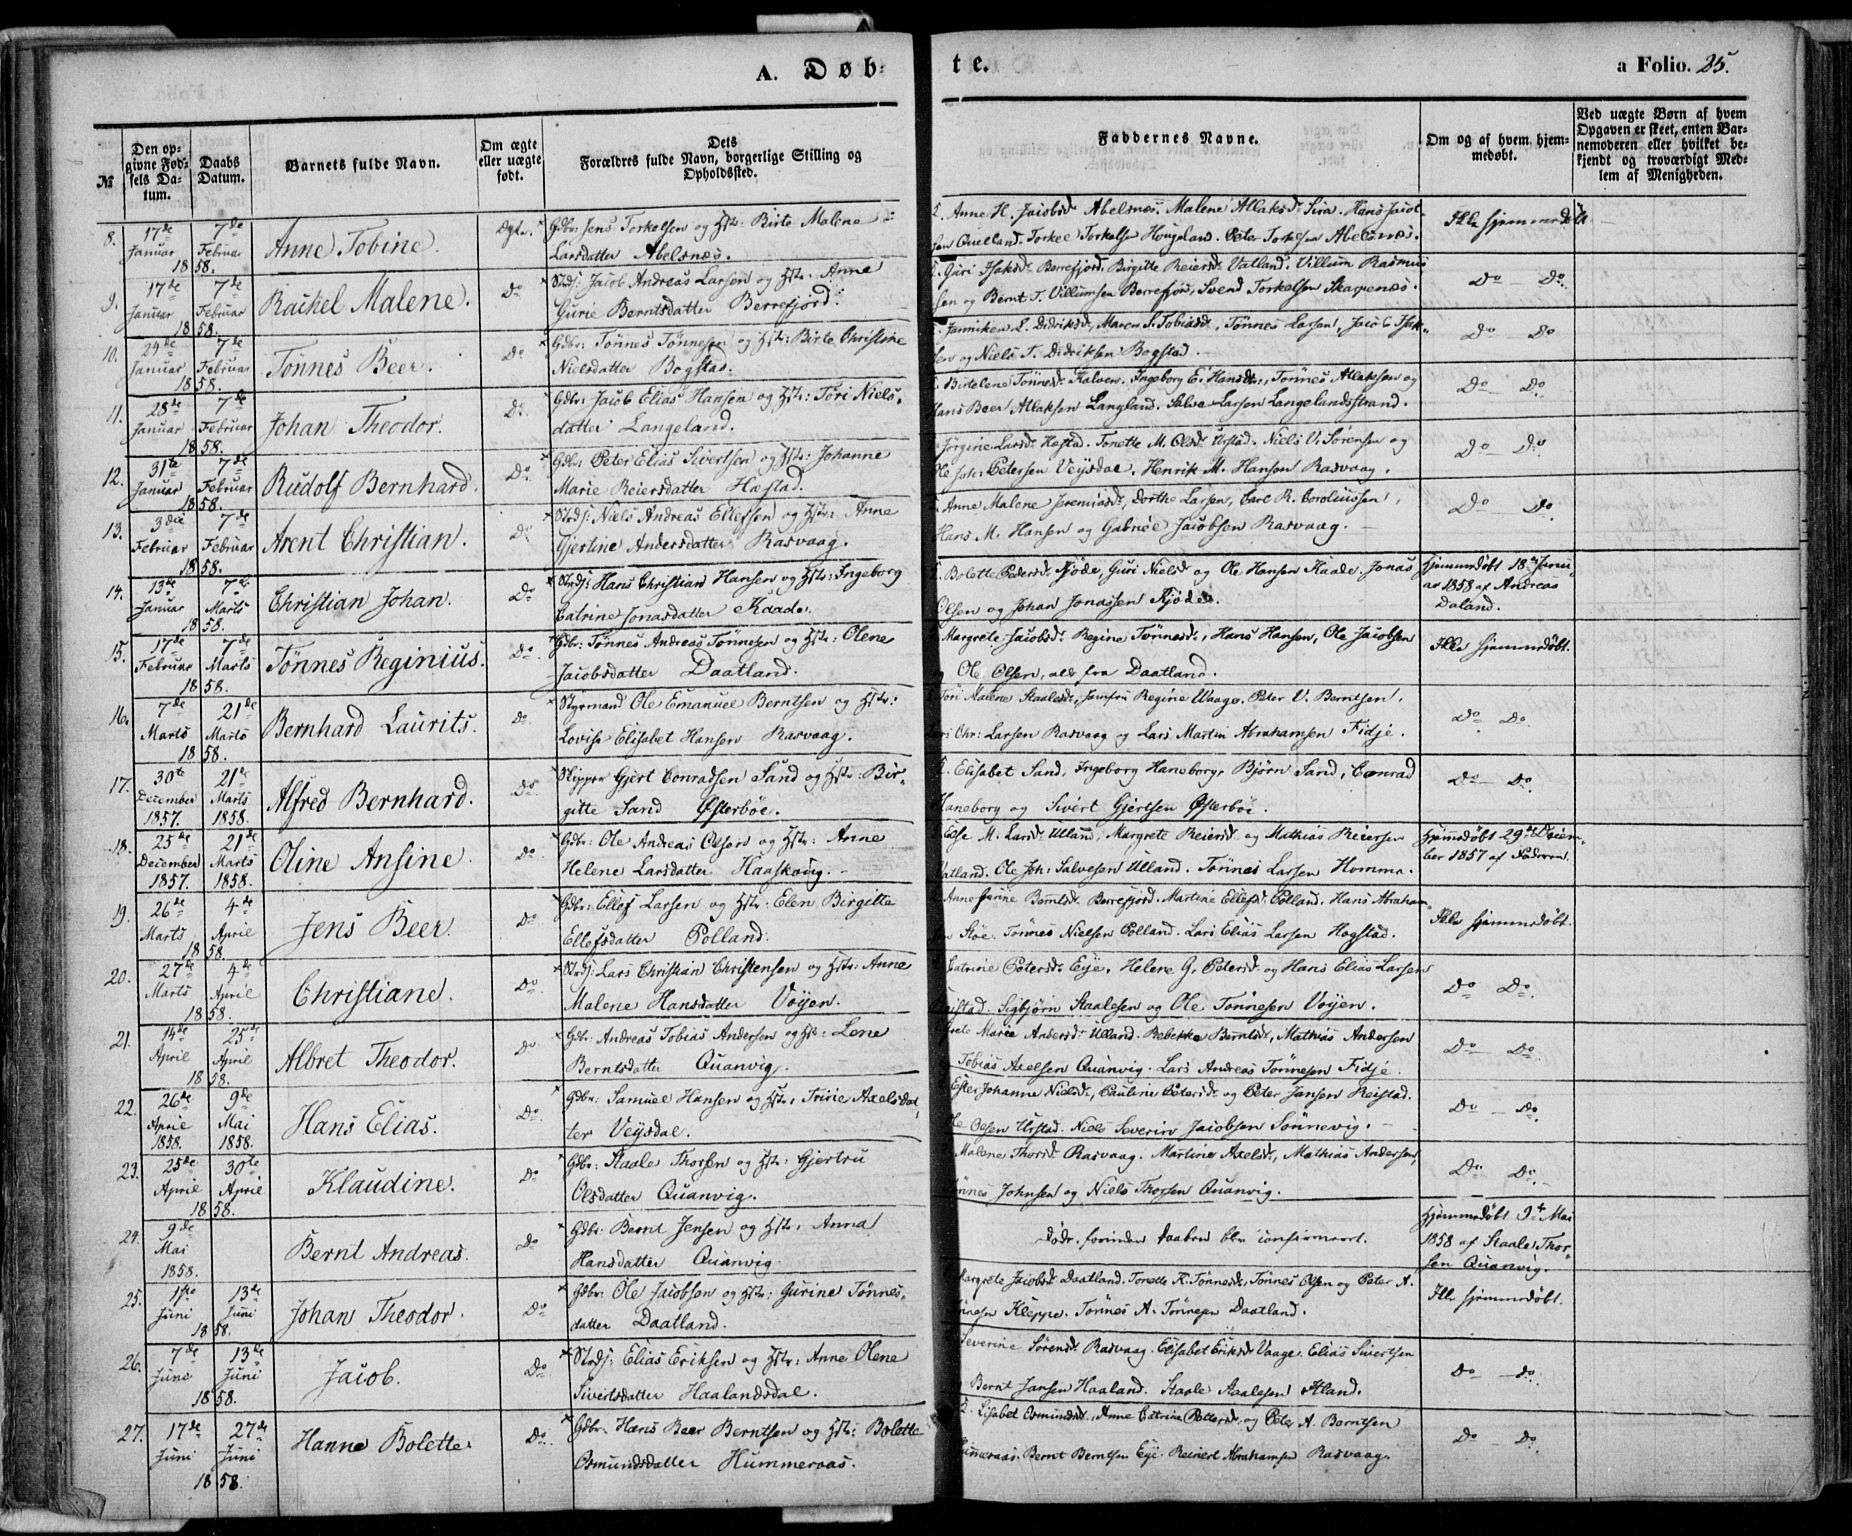 A. Døbte.
a Folio. 25.
№
Den opgivne Fødsels Datum.
Daabs Datum.
Barnets fulde Navn.
Om ægte eller uægte født.
Dets Forældres fulde Navn, borgerlige Stilling og Opholdssted.
Faddernes Navne.
Om og af hvem hjemmedøbt.
Ved uægte Børn af hvem Opgaven er skeet, enten Barnemoderen eller hvilket bekjendt og troværdigt Medlem af Menigheden.
8. 17de Januar 7de Februar 1858. Anne Tobine. Ægte. Gdbr: Jens Torkelsen og Hstr: Birte Malene
Larsdatter Abelsnæs.
Anne H. Jacobsd. Abelsnæs. Malene Atlaksd. Sira. Hans Jacob-
sen Quelland. Torkel Torkelsen Hougeland. Peter Torkelsen Abelsnæs. Ikke hjemmedøbt
9. 17de Januar 7de Februar 1858. Rachel Malene. Do Strdsj: Jacob Andreas Larsen og Hstr: Anne
Gurie Berntsdatter Berrefjord.
Guri Isaksd. Berrefjord. Birgitte Reiersd. Vatland. Villum Rasmus-
sen og Bernt T. Villumsen Berrefjord, Svend Torkelsen Skarpenæs. Do Do.
10. 24de Januar 7de Februar 1858. Tønnes Beer. Do Gdbr: Tønnes Tønnesen og Hstr: Birte Christine
Nielsdatter Bogstad.
Janniken L. Didriksd., Maren S. Tobiasd., Tønnes Larsen, Jacob Isak-
sen og Niels T. Didriksen Bogstad. Do Do
11. 28de Januar 7de Februar 1858. Johan Theodor. Do. Gdbr: Jacob Elias Hansen og Hstr: Tori Niels-
datter Langeland.
Birtelene Tønnesd. Kalven. Ingeborg E. Hansdtr., Tønnes Atlaksen og
Hans Beer Atlaksen Langland. Salve Larsen Langelandsstrand. Do Do.
12. 31te Januar 7de Februar 1858. Rudolf Bernhard. Do. Gdbr: Peter Elias Sivertsen og Hstr: Johanne
Marie Reiersdatter Hæstad.
Jørgine Larsd. Hæstad. Tonette M. Olsd. Urstad. Niels V. Sørensen og
Ole Joh: Petersen Veisdal. Henrik M. Hansen Rasvaag. Do Do.
13. 3die Februar 7de Februar 1858. Arent Christian. Do Strdsj: Niels Andreas Ellefsen og Hstr: Anne
Gjertine Andersdatter Rasvaag.
Anne Malene Jeremiasd., Dorthe Larsen, Carl R. Coroliussen,
Hans M. Hansen og Gabriel Jacobsen Rasvaag. Do Do
14. 13de Januar 7de Marts 1858. Christian Johan. Do Strdsj: Hans Christian Hansen og Hstr: Ingeborg
Catrine Jonasdatter Kaade.
Bolette Pedersd. Fjøde, Guri Nielsd. og Ole Hansen Kaade. Jonas
Olsen og Johan Jonassen Fjøde. Hjemmedøbt 18de Janu-
ar 1858 af Andreas
Daland.
15. 17de Februar 7de Marts 1858. Tønnes Reginius. Do. Gdbr: Tønnes Andreas Tønnesen og Hstr: Olene
Jacobsdatter Daatland.
Margrete Jacobsd. Regine Tønnesd., Hans Hansen, Ole Jacobsen
og Ole Olsen, alle fra Daatland. Ikke hjemmedøbt.
16. 7de Marts 21de Marts 1858. Bernhard Laurits. Do. Styrmand Ole Emanuel Berntsen og Hstr:
Lovise Elisabet Hansen Rasvaag.
Tori Malene Staalesd., Jomfru Regine Waage. Peter V. Berntsen,
Lars Chr: Larsen Rasvaag og Lars Martin Abrahamsen Fidje. Do Do.
17. 30te December 1857. 21de Marts 1858. Alfred Bernhard. Do Skipper Gjert Conradsen Sand og Hstr: Bir-
gitte Sand Østerbøe.
Elisabet Sand, Ingeborg Haneborg, Bjørn Sand, Conrad
Haneborg og Sivert Gjertsen Østerbøe. Do Do.
18. 25de December 1857. 21de Marts 1858. Oline Ansine. Do. Gdbr: Ole Andreas Olsen og Hstr: Anne
Helene Larsdatter Haaskoug.
Else M. Larsd. Ulland, Margrete Reiersd. og Mathias Reiersen
Vatland. Ole Joh: Salvesen Ulland. Tønnes Larsen Homme. Hjemmedøbt 29de Decem-
ber 1857 af Faderen.
19. 26de Marts 4de April 1858. Jens Beer. Do Gdbr: Ellef Larsen og Hstr: Elen Birgitte
Ellefsdatter Polland.
Anne Gurine Berntsd. Berrefjord. Martine Ellefsd. Polland. Hans Abraham-
sen Støe. Tønnes Nielsen Polland. Lars Elias Larsen Hogstad. Ikke hjemmedøbt.
20. 27de Marts 4de April 1858. Christiane. Do. Strdsj: Lars Christian Christensen og Hstr: Anne
Malene Hansdatter Vøyen.
Catrine Petersd. Eye, Helene G. Petersd. og Hans Elias Larsen
Reistad. Sigbjørn Staalesen og Ole Tønnesen Vøyen. Do Do.
21. 14de April 25de April 1858. Albret Theodor. Do Gdbr: Andreas Tobias Andersen og Hstr: Lene
Berntsdatter Quanvig.
Marie Andersd. Ulland. Rebekka Berntsd., Mathias Andersen
Tobias Axelsen Quanvig. Lars Andreas Tønnesen Fidje. Do Do.
22. 26de April 1858. 9de Mai 1858. Hans Elias. Do Gdbr: Samuel Hansen og Hstr: Tririe Axelsdat-
ter Veysdal.
Ester Johanne Nielsd., Pauline Petersd. og Peter Jansen Reistad.
Ole Olsen Urstad. Niels Severin Jacobsen Sønnevig. Do Do.
23. 25de April 30te April 1858. Klaudine. Do Gdbr: Staale Thorsen og Hstr: Gjertru
Olsdatter Quanvig.
Malene Thorsd. Rasvaag. Martine Axelsd., Mathias Andersen,
Tønnes Johnsen og Niels Thorsen Quanvig. Do Do.
24. 9de Mai 1858. Bernt Andreas. Do Gdbr: Bernt Jensen og Hstr: Anna
Hansdatter Quanvig.
Døde, forinden Daaben blev confirmeret. Hjemmedøbt 9de Mai
1858 af Staale Thor-
sen Quanvig.
25. 1ste Juni 13de Juni 1858. Johan Theodor. Do Gdbr: Ole Jacobsen og Hstr: Gurine Tønnes-
datter Daatland.
Margrete Jacobsd. Daatland. Tonette R. Tønnesd., Tønnes Olsen og Peter A.
Tønnesen Kleppe. Tønnes A. Tønnesen Daatland. Ikke hjemmedøbt.
26. 7de Juni 13de Juni 1858. Jacob. Do Strdsj: Elias Eriksen og Hstr: Anne Olene
Sivertsdatter Haalandsdal.
Severine Sørensd. Rasvaag. Elisabet Eriksd. Vaage. Elias Sivertsen
og Bernt Jansen Haaland. Staale Aalesen Øtland. Do Do.
27. 17de Juni 27de Juni 1858. Hanne Bolette. Do. Gdbr: Hans Beer Berntsen og Hstr: Bolette
Osmundsdatter Hummeraas.
Lisabet Osmundsd., Anne Catrine Pettersd. og Peter A. Berntsen
Hummeraas. Bernt Berntsen Eye. Reinert Abrahamsen Rasvaag. Do Do.